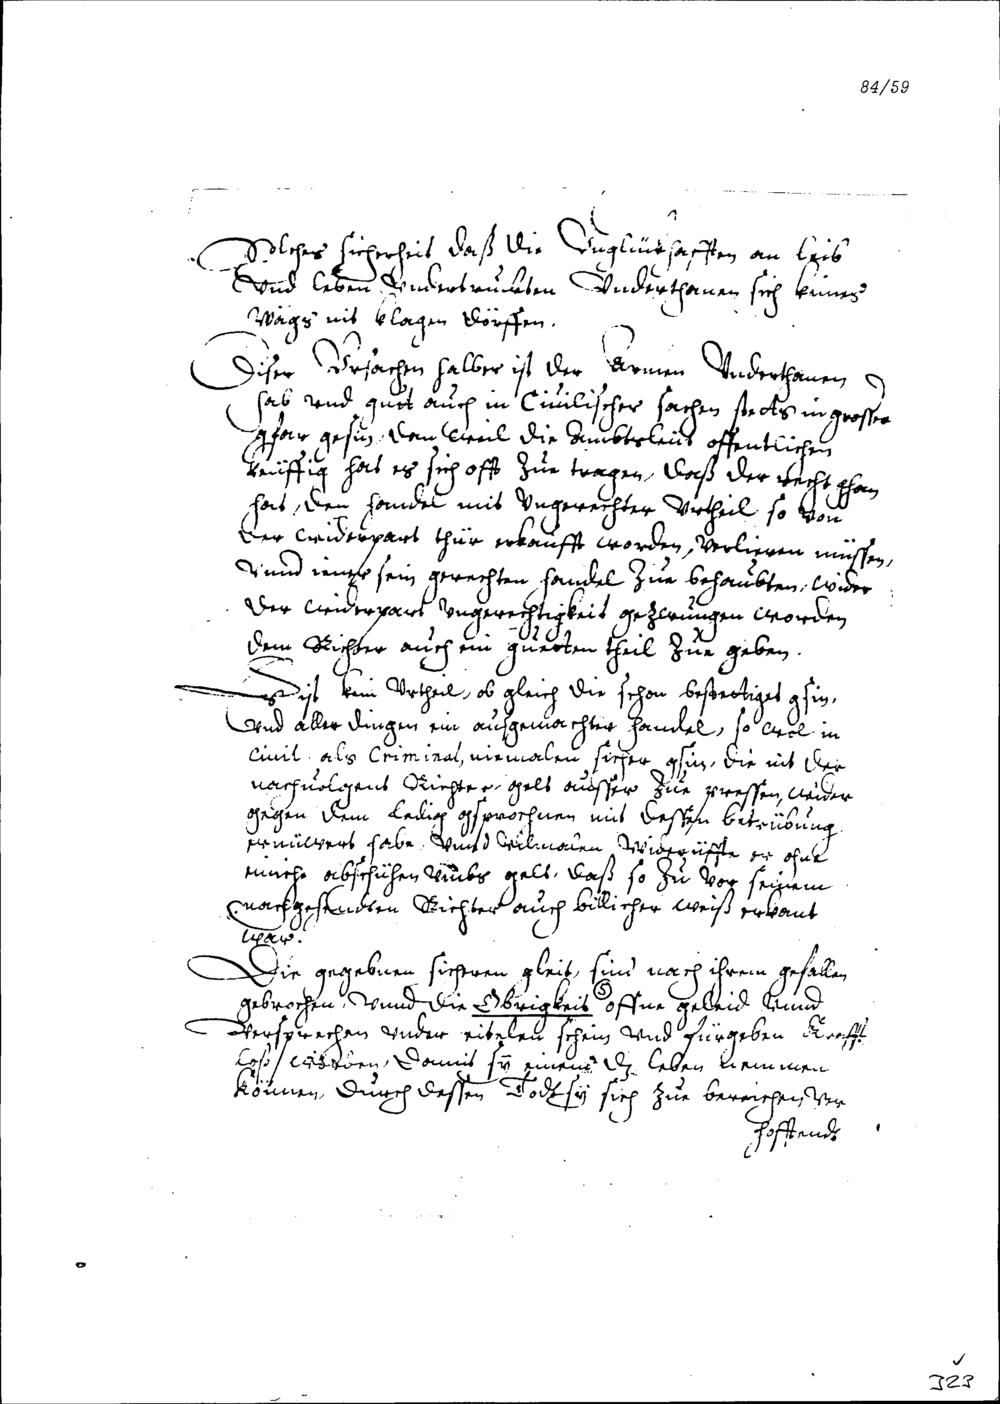 84/59
Solcher sicherheit daß die Vnglückhafften an leib
vnd leben Vndertruckten Vnderthanen sich keines
wägs nit klagen dörffen.
Diser Vrsachen halber ist der Armen Vnderthanen
hab vnd guet auch in Ciuilischer sachen stects in grosser
gfar gesin, den weil die Ambtsleüt offentlichen
keüffig hat es sich offt zue tragen, daß der recht ghan
hat, den handel mit Vngerechter Vrtheil so von
der widerpart thür erkaufft worden, verlieren müssen,
vnnd iener sein gerechten handel zue behaubten, wider
der widerpart Vngerechtigkeit gezwungen worden
dem Richter auch ein gueten theil zue geben.
Es ist kein Vrtheil, ob gleich die schon bestectiget gsin,
vnd aller dingen ein ausgemachter handel, so wol in
Ciuil als Criminal, niemalen sicher gsin, die nit der
nachuolgent Richter, gelt ausser zue pressen, wider
gegen dem ledig gsprochnen mit dessen betrübung
ernüwert habe, vnnd vilmalen widerüffte er ohne
einiche abschühen vmbs gelt, daß so zu vor seinem
nachgesendten Richter auch billicher weiß erkant
war.
Die gegebnen sicheren gleit, sind nach ihrem gefallen
gebrochen, vnnd die Obrigkeit (5) offne geleid vnnd
Versprechen vnder eitelen schein vnd fürgeben Krafft
loß / worden, damit sÿ einem dz leben nemmen
können, durch dessen Todt sÿ sich zue bereichen ver
hoffends
323